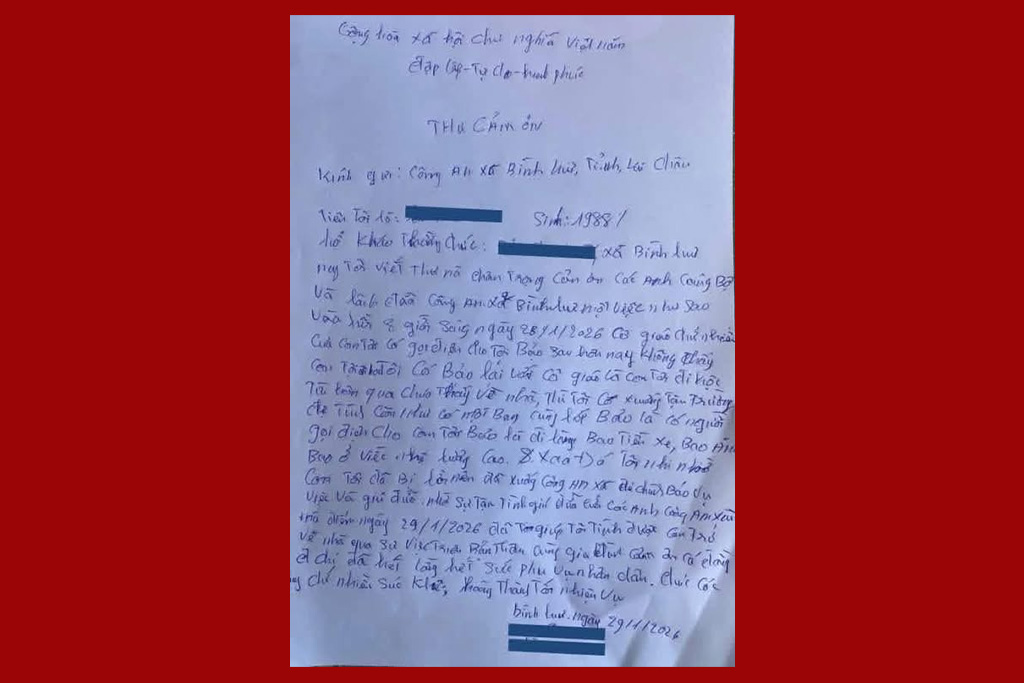 Cộng hòa xã hội chủ nghĩa Việt nam
độc lập - Tự do - hạnh phúc
THƯ CẢM ƠN
Kính gửi: Công AN xã Bình Lư, Tỉnh, Lai Châu
Tên Tôi là: Sinh: 1988
hộ khẩu Thường Chúc: xã Bình Lư
nay Tôi viết Thư nà chân Trọng Cảm ơn Các Anh Cán Bộ
Và lãnh đạo Công AN xã Bình Lư một việc như sao
Vào hồi 8 giờ Sáng ngày 28/1/2026 Cô giáo chủ nhiệm
Của con Tôi Có gọi điện cho Tôi Bảo sau hôm nay không thấy
con Tôi Tôi Có Bảo lại với Cô giáo là con Tôi đi học
Từ hôm qua Chưa Thấy Về nhà, Thì Tôi Có xuống Tận Trường
để Tìm Con Thì có một Bạn cùng lớp Bảo là Có người
gọi điện Cho con Tôi Bảo là đi làm Bao Tiền Xe, Bao ĂN
Bao ở Việc nhẹ lương Cao. Tôi nhi nhờ
Con Tôi đã Bị lừa nên đã xuống Công AN xã để Báo Vụ
Việc Và giúp đỡ. nhờ Sự Tận Tình giúp đỡ của Các Anh Công AN xã
đêm ngày 29/1/2026 đã giúp Tôi Tình được con Trở
Về nhà qua Sự Việc Trên Bản Thân cùng gia đình Cảm ơn Các đồng
chí đã hết lòng hết Sức phụ vụ nhân dân. Chúc Các
chí nhiều Sức Khẻ, hoàng Thành Tốt nhiệm Vụ
Bình Lư. ngày 29/1/2026